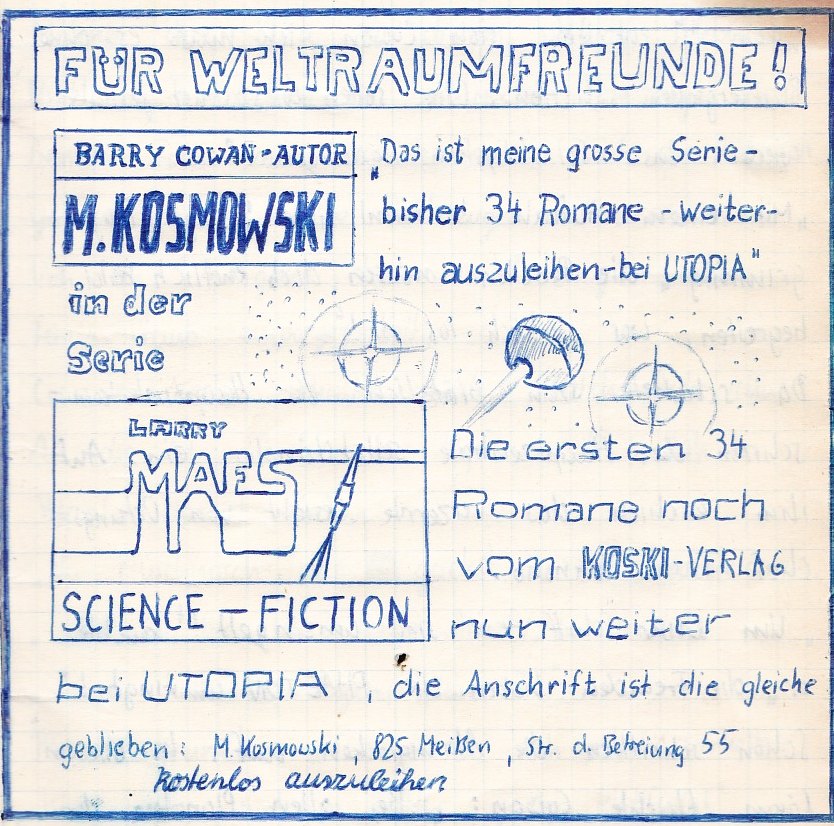 FÜR WELTRAUMFREUNDE!
BARRY COWAN-AUTOR
M. KOSMOWSKI
„Das ist meine grosse Serie-
bisher 34 Romane - weiter-
hin auszuleihen-bei UTOPIA"
in der
Serie
LARRY
MAES
SCIENCE - FICTION
Die ersten 34
Romane noch
vom KOSKI-VERLAG
nun weiter
bei UTOPIA, die Anschrift ist die gleiche
geblieben: M. Kosmowski, 825 Meißen, Str. d. Befreiung 55
kostenlos auszuleihen